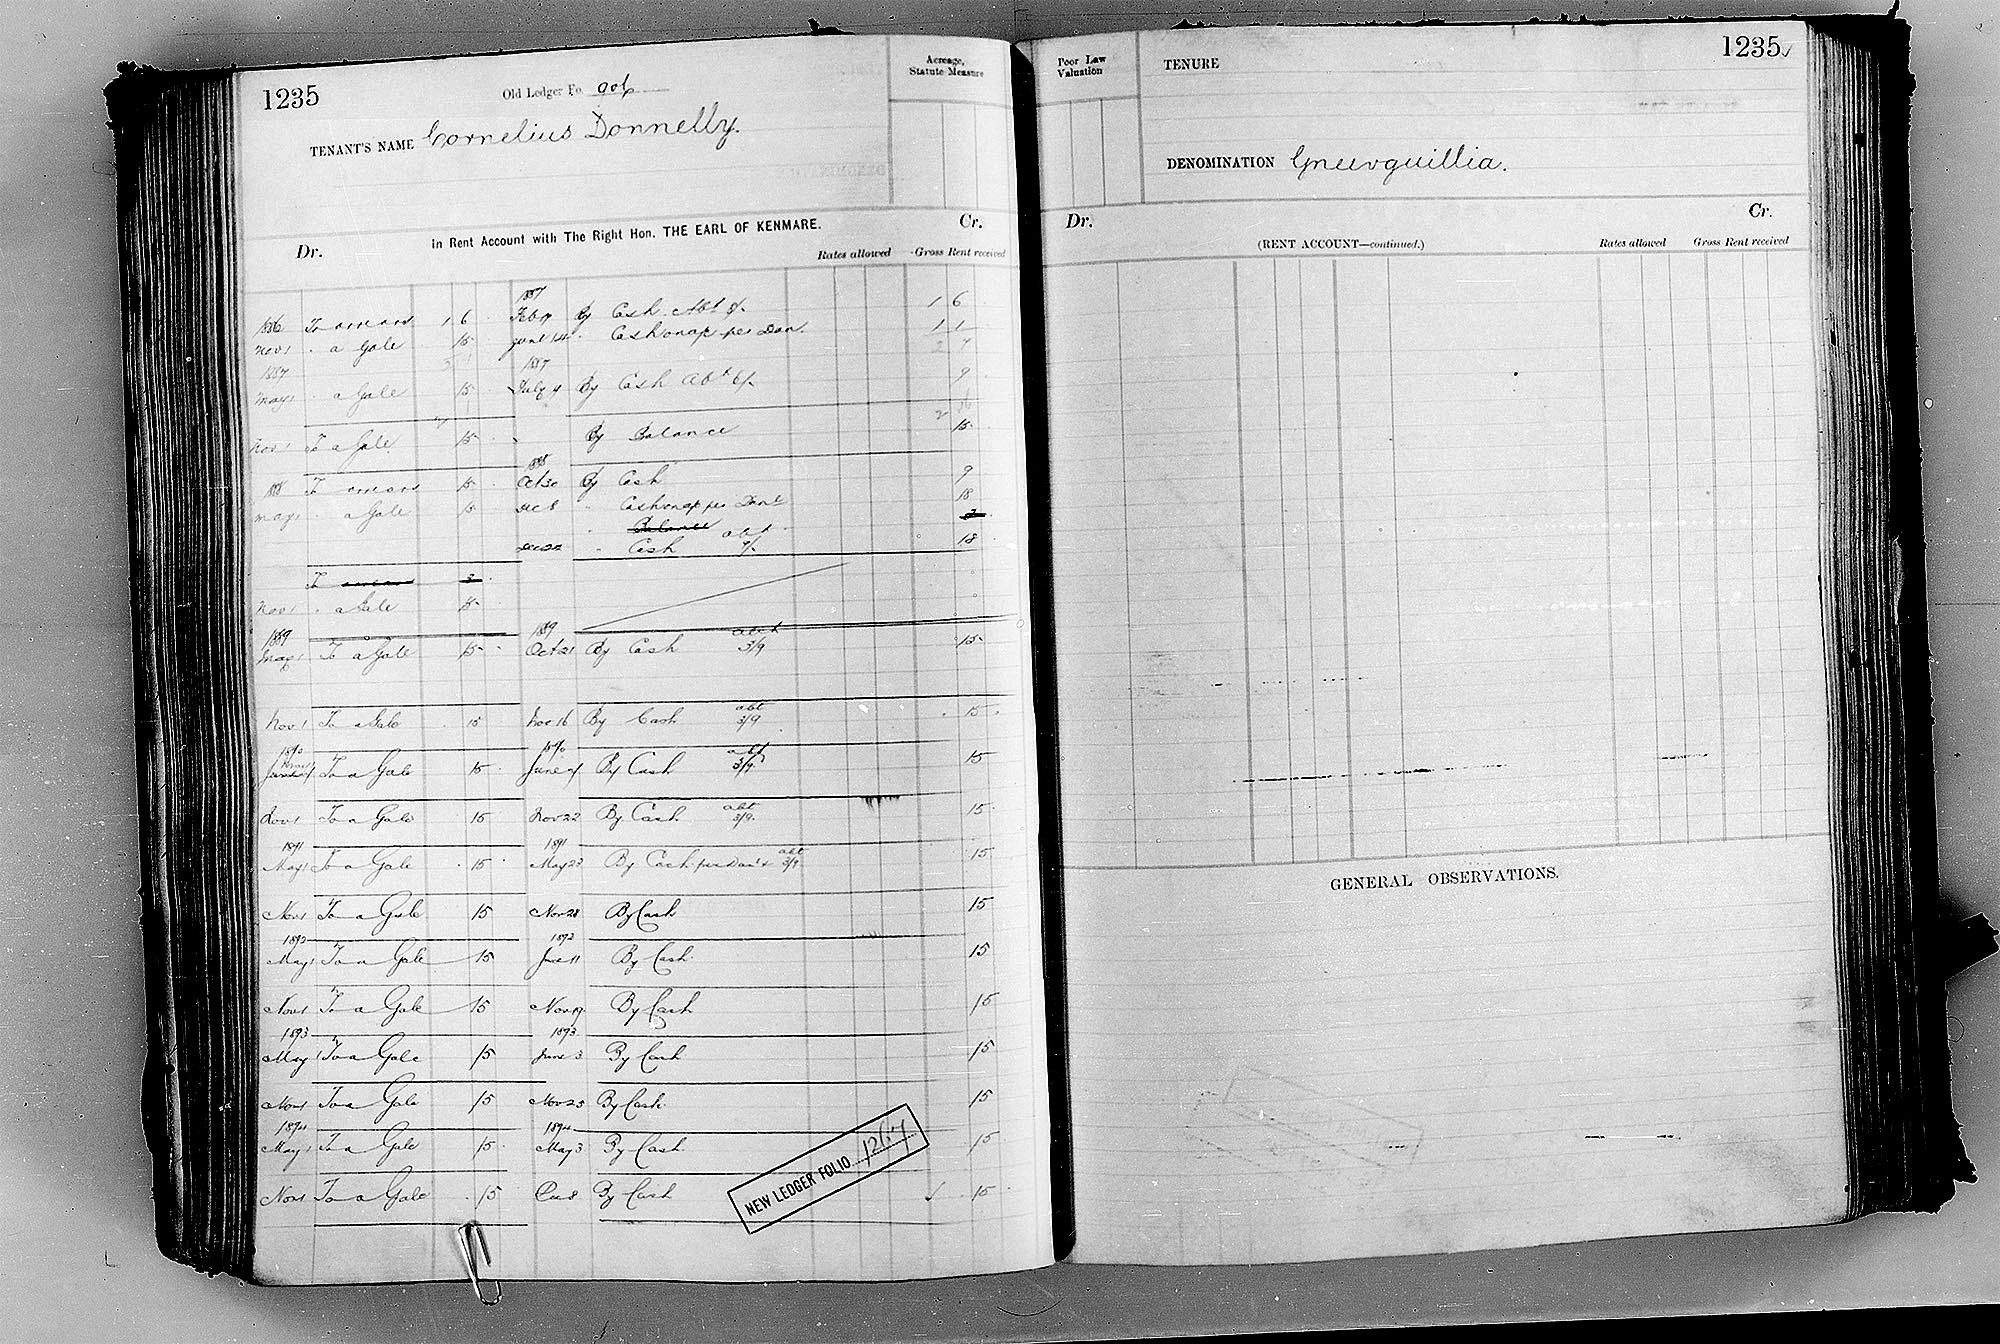 1235
Old Ledger Fo. 906
TENANT'S NAME Cornelius Donnelly.
Acreage,
Statute Measure
In Rent Account with The Right Hon. THE EARL OF KENMARE.
Dr. Cr.
Rates allowed Gross Rent received
1887
1886 To arrears 1 6 Feby By Cash Abt 1 6
Nov 1 " a Gale 15 June 14 " Cash on a/c per Dan. 1 1
1887 1887
May 1 " a Gale 15 July 4 By Cash Abt 6/- 9
Nov 1 To a Gale 15 By Balance 15
1888
1888 To arrears 15 Oct 30 By Cash 9
May 1 " a Gale 15 Dec 8 " Cash on a/c per Danl 18
" Balance 3
Dec 22 " Cash abt 9/- 18
To arrears 3
Nov 1 " a Gale 15
1889 1889
May 1 To a Gale 15 Oct 21 By Cash abt 3/9 15
Nov 1 To a Gale 15 Dec 16 By Cash abt 3/9 15
1890 1890
To a Gale 15 June By Cash abt 3/9 15
Nov 1 To a Gale 15 Nov 22 By Cash abt 3/9 15
1891 1891
May 1 To a Gale 15 May 23 By Cash per Danl abt 3/9 15
Nov 1 To a Gale 15 Nov 28 By Cash 15
1892 1892
May 1 To a Gale 15 June 11 By Cash 15
Nov 1 To a Gale 15 Nov 19 By Cash 15
1893 1893
May 1 To a Gale 15 June 3 By Cash 15
Nov 1 To a Gale 15 Nov 25 By Cash 15
1894 1894
May 1 To a Gale 15 May 3 By Cash 15
Nov 1 To a Gale 15 Dec 8 By Cash 15
NEW LEDGER FOLIO 1267
1235
Poor Law
Valuation
TENURE
DENOMINATION Gneevguillia.
Dr. Cr.
(RENT ACCOUNT—continued.) Rates allowed Gross Rent received
GENERAL OBSERVATIONS.